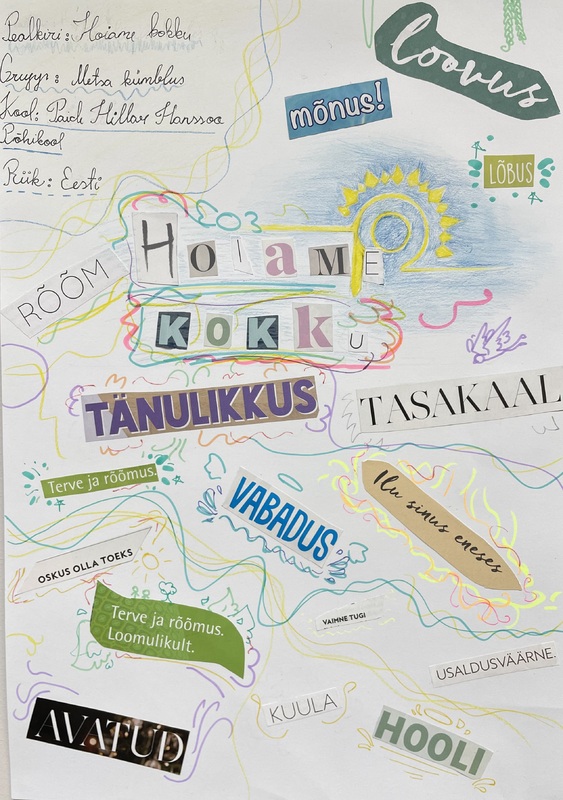 Pealkiri: Hoiame kokku
Grupp: Metsa kümblus
Kool: Paide Hillar Hanssoo
Põhikool
Riik: Eesti
loovus
mõnus!
LÕBUS
HOIAME
RÕÕM
KOKKu
TÄNULIKKUS
TASAKAAL
Terve ja rõõmus.
VABADUS
Ilu sinus eneses
OSKUS OLLA TOEKS
Terve ja rõõmus.
Loomulikult.
VAIMNE TUGI
USALDUSVÄÄRNE.
KUULA
AVATUD
HOOLI